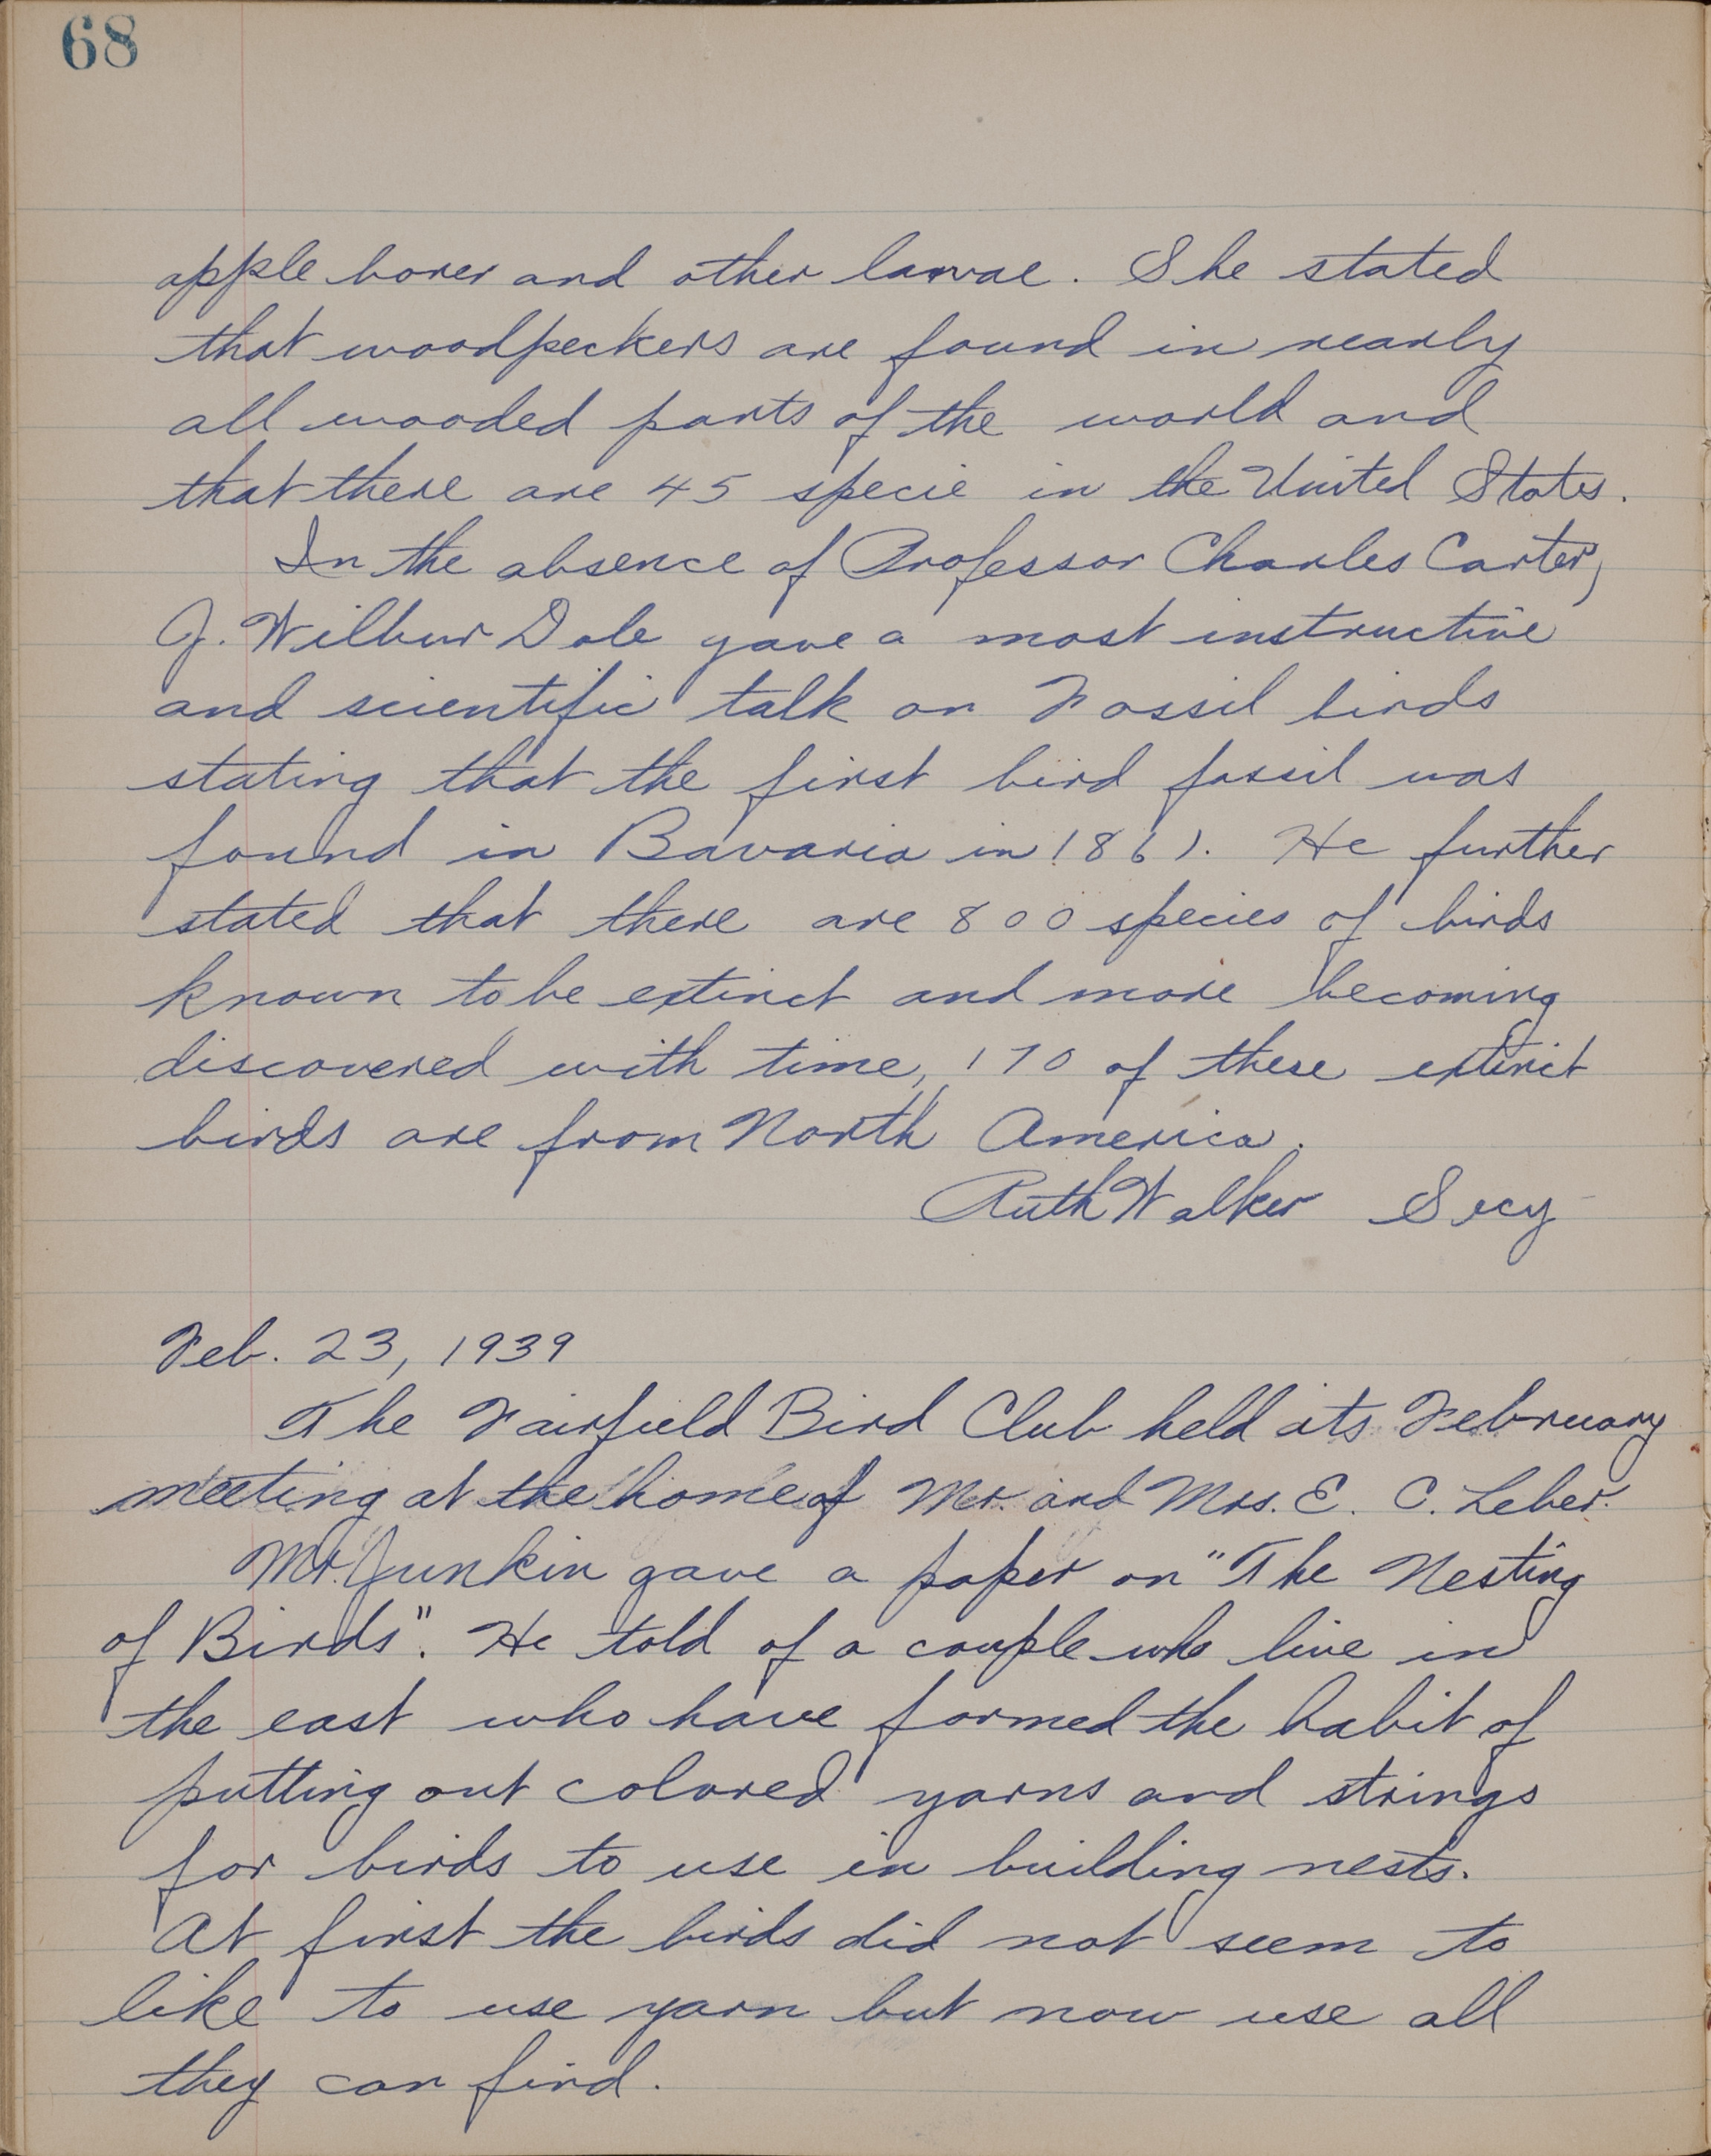 68
apple borer and other larvae. She stated
that woodpeckers are found in nearly
all wooded parts of the world and
that there are 45 specie in the United States.
In the absence of Professor Charles Carter,
J. Wilbur Dole gave a most instructive
and scientific talk on Fossil birds
stating that the first bird fossil was
found in Bavaria in 1861. He further
stated that there are 800 species of birds
known to be extinct and more becoming
discovered with time, 170 of these extinct
birds are from North America.
Ruth Walker Secy
Feb. 23, 1939
The Fairfield Bird Club held its February
meeting at the home of Mr. and Mrs. E. C. Leber.
Mr. Junkin gave a paper on "The Nesting
of Birds". He told of a couple who live in
the east who have formed the habit of
putting out colored yarns and strings
for birds to use in building nests.
At first the birds did not seem to
like to use yarn but now use all
they can find.